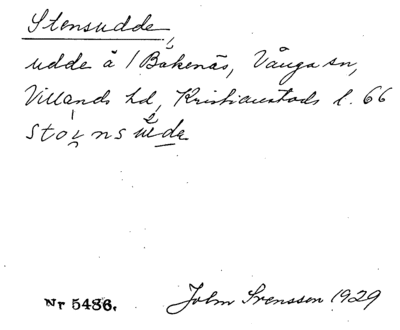 Stensudde,
udde å /Bökenäs, Vånga sn,
Villands hd, Kristianstads l. 66
stoi̯nsude
Nr 5486. John Svensson 1929